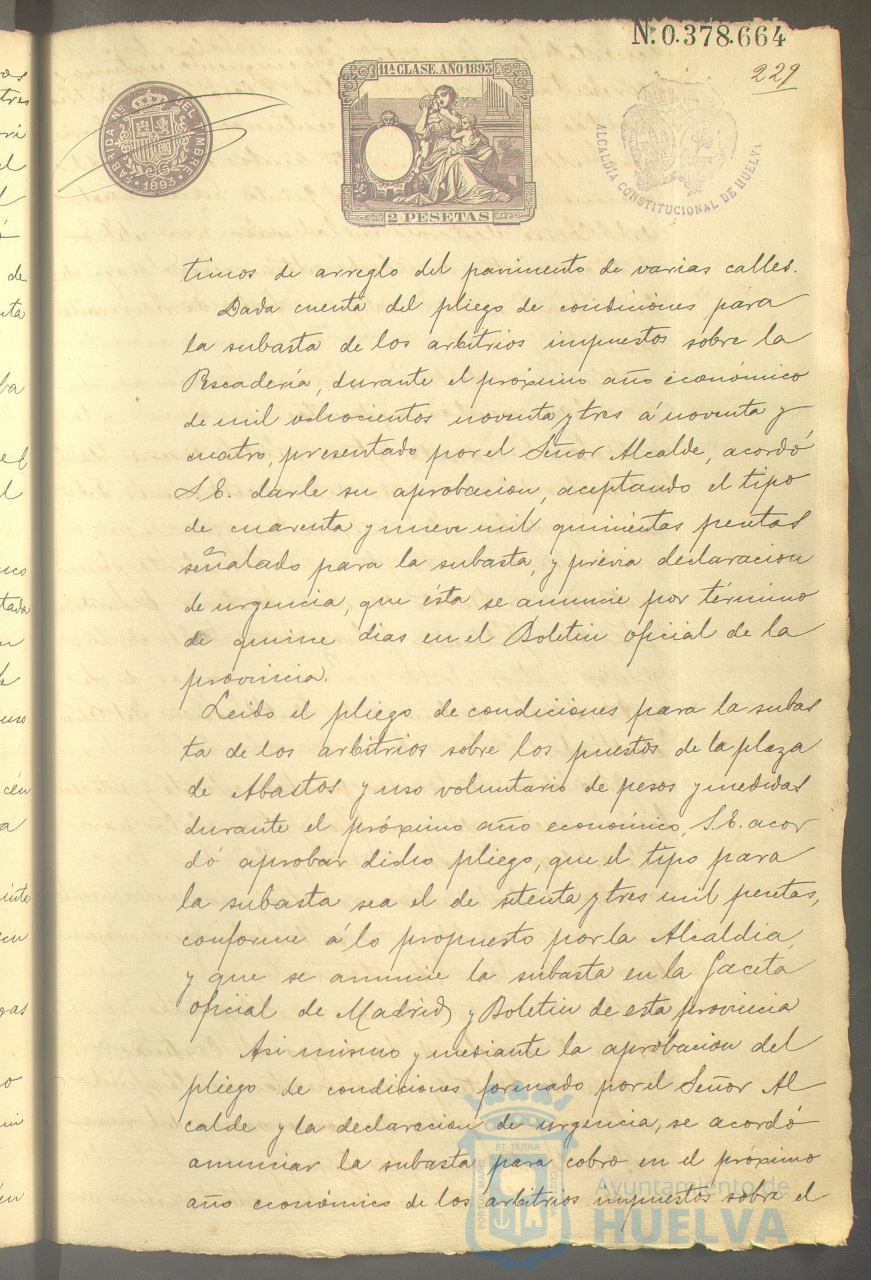 Nº 0.378.664
229
11ª CLASE. AÑO 1893
2 PESETAS
FABRICA Nˡ DEL TIMBRE
1893
ALCALDIA CONSTITUCIONAL DE HUELVA
timos de arreglo del pavimento de varias calles.
Dada cuenta del pliego de condiciones para
la subasta de los arbitrios impuestos sobre la
Pescadería, durante el próximo año económico
de mil ochocientos noventa y tres á noventa y
cuatro, presentado por el Señor Alcalde, acordó
S.E. darle su aprobacion, aceptando el tipo
de cuarenta y nueve mil quinientas pesetas
señalado para la subasta, y prévia declaracion
de urgencia, que ésta se anuncie por término
de quince dias en el Boletin oficial de la
provincia.
Leido el pliego de condiciones para la subas
ta de los arbitrios sobre los puestos de la plaza
de Abastos y uso voluntario de pesos y medidas
durante el próximo año económico, S.E. acor
dó aprobar dicho pliego, que el tipo para
la subasta sea el de setenta y tres mil pesetas,
conforme á lo propuesto por la Alcaldia,
y que se anuncie la subasta en la Gaceta
oficial de Madrid y Boletin de esta provincia
Asi mismo y mediante la aprobacion del
pliego de condiciones formado por el Señor Al
calde y la declaracion de urgencia, se acordó
anunciar la subasta para cobro en el próximo
año económico de los arbitrios impuestos sobre el
Ayuntamiento de
HUELVA